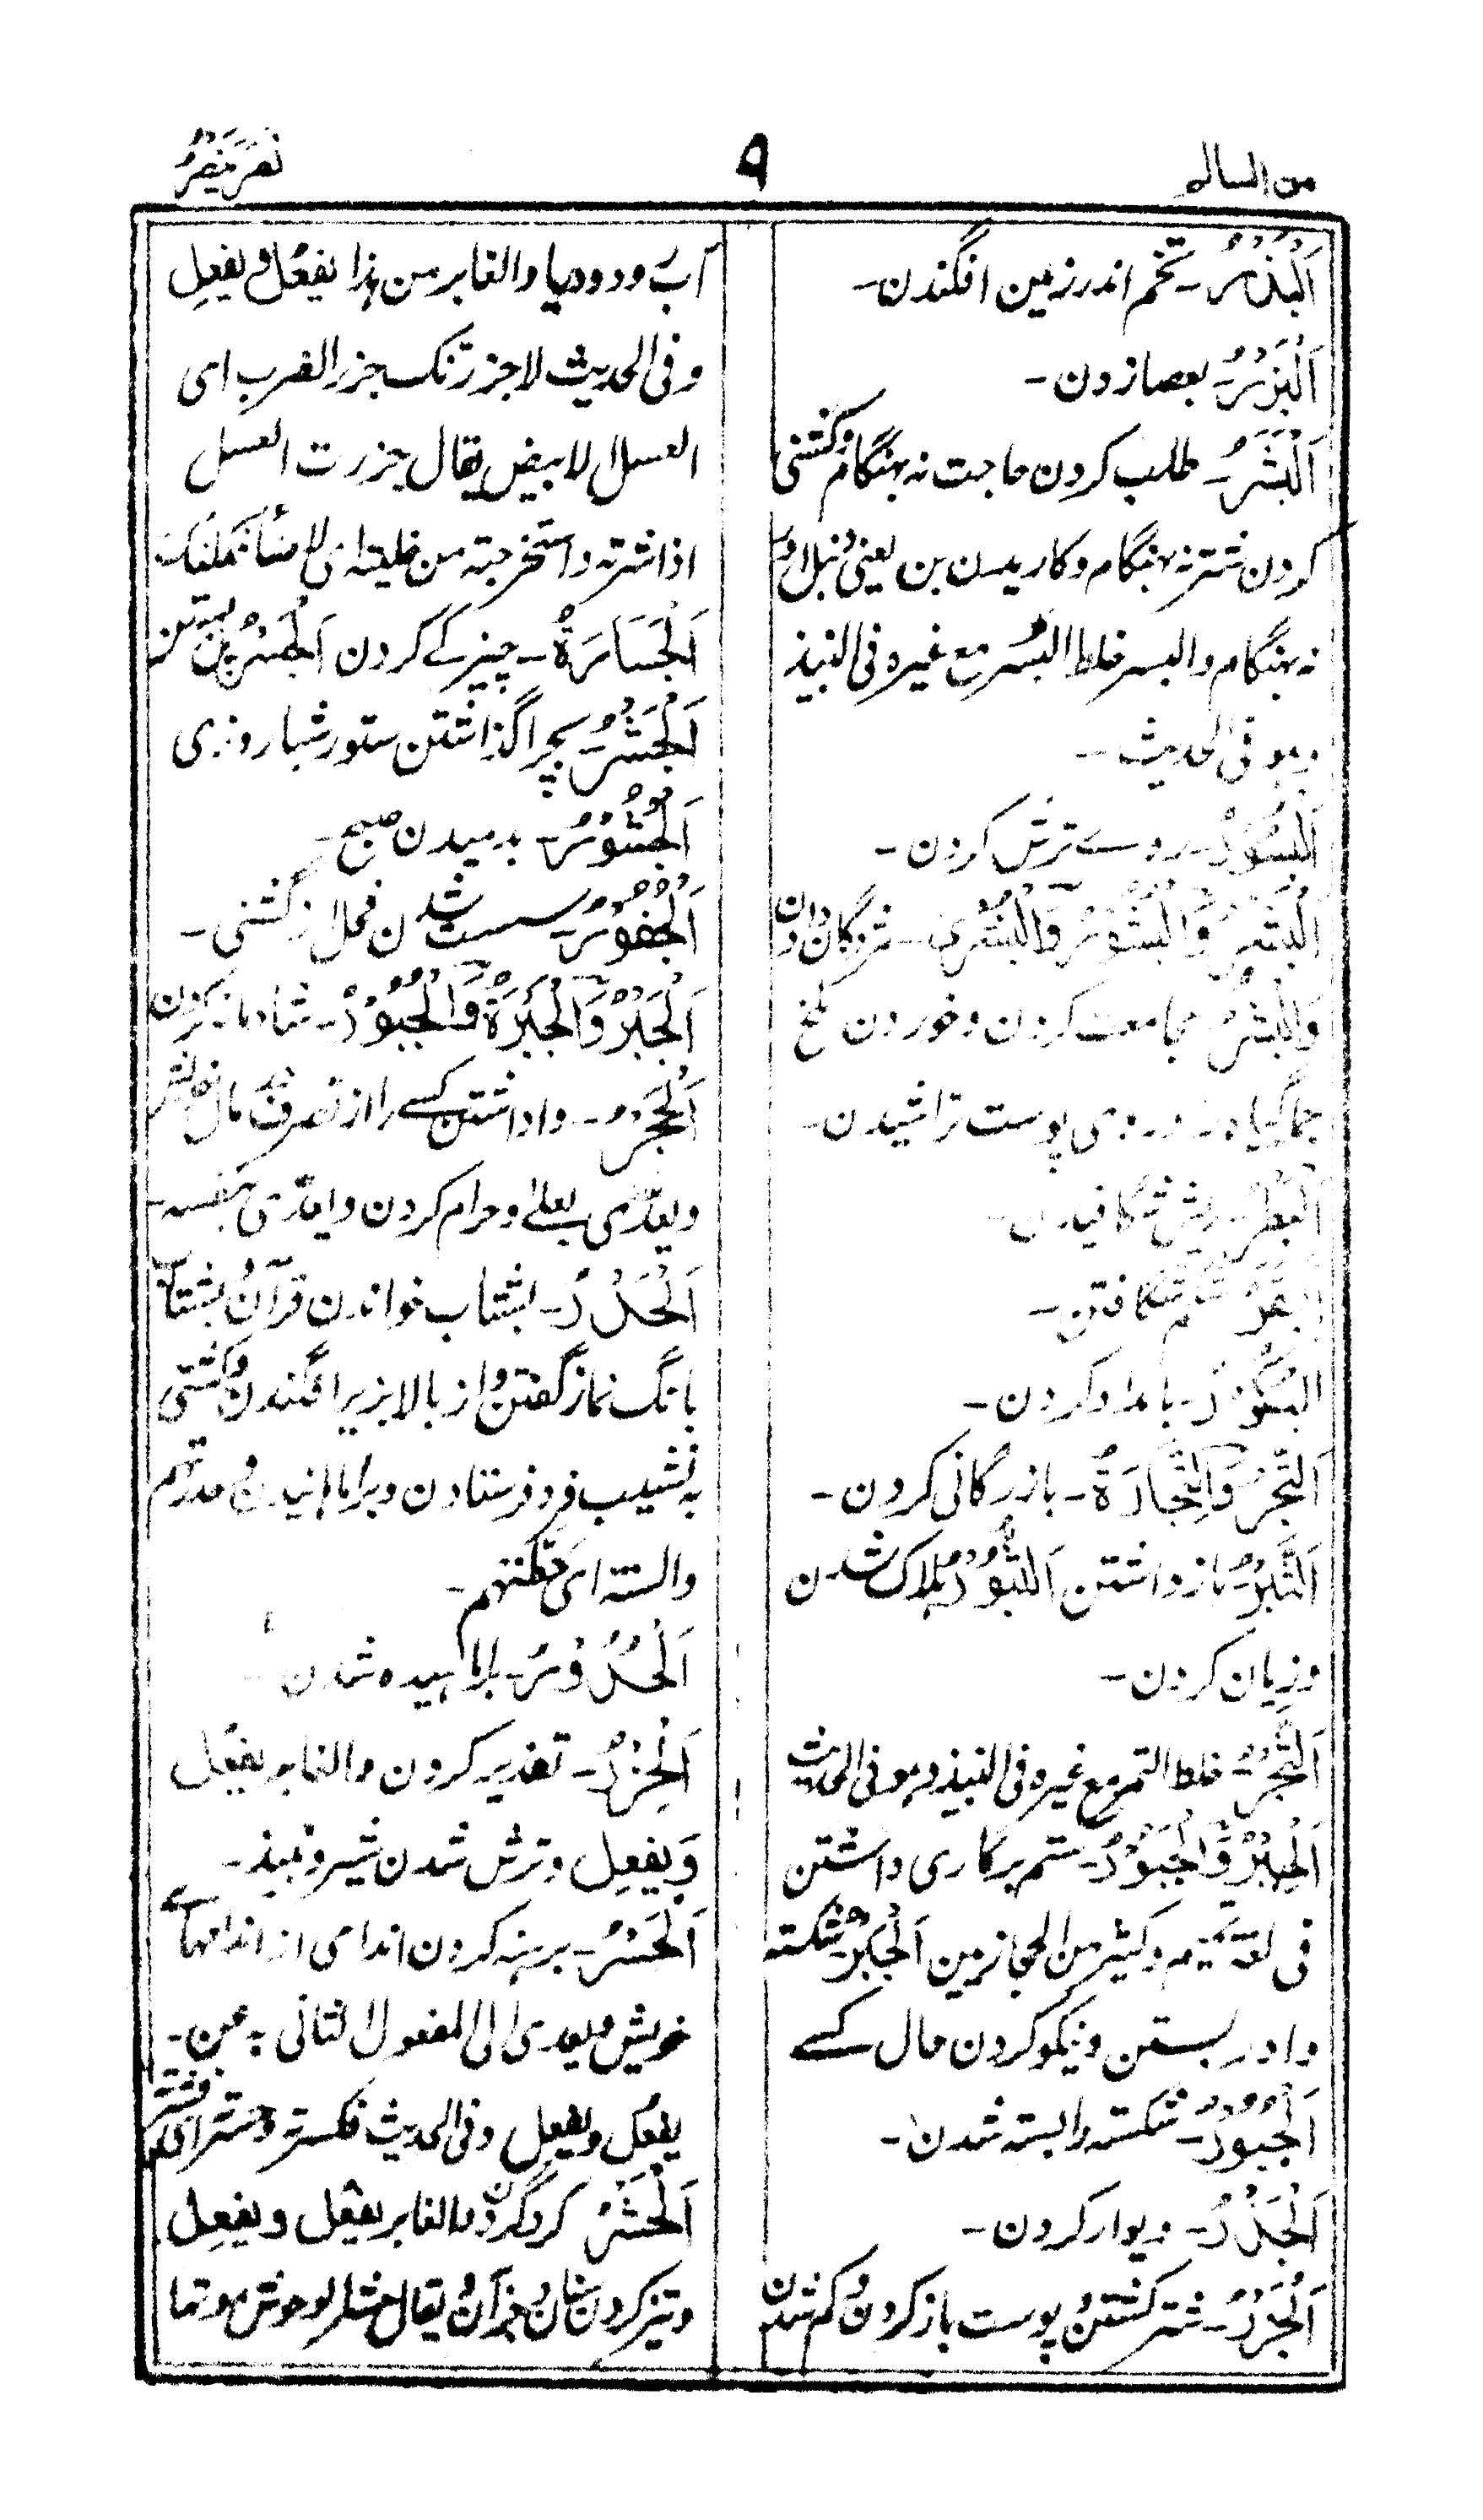 من السالم
۹
نَصَرَ يَنْصُرُ
اَلْبَذْرُ۔ تخم اندر زمین افگندن۔
اَلْبَزْرُ۔ بعصا زدن۔
اَلْبَسْرُ۔ طلب کردن حاجت نہ بہنگام و کشنی
کردن شتر نہ بہنگام و کاریدن بن یعنی دنبل او را
نہ بہنگام والبسر خلط البُسر مع غیرہ فی النبیذ
وہو فی الحدیث۔
اَلْبُسُوْرُ۔ روے ترش کردن۔
اَلْبَشْرُ وَالْبُشُوْرُ وَالْبُشْرٰی۔ مژدگان دادن
وَالْبَشْرُ مجامعت کردن و خوردن ملخ
گیاہ و روی پوست تراشیدن۔
اَلْبَطْرُ۔ ریش شگافیدن۔
اَلْبَقْرُ شکم شگافتن۔
اَلْبُکُوْرُ۔ بامداد کردن۔
اَلتَّجْرُ وَالتِّجَارَۃُ۔ بازرگانی کردن۔
اَلثَّبْرُ۔ بازداشتن اَلثُّبُوْرُ ہلاک شدن
وزیان کردن۔
اَلثَّجْرُ۔ خلط التمر مع غیرہ فی النبیذ وہو فی الحدیث
اَلْجَبْرُ وَالْجُبُوْرُ۔ ستم برکاری داشتن
فی لغۃ تمیم وکثیر من الحجازیین اَلْجَبْرُ شکستہ
وادر بستن و نیکو کردن حال کسے
اَلْجُبُوْرُ۔ شکستہ وابستہ شدن۔
اَلْجَدْرُ۔ دیوار کردن۔
اَلْجَزْرُ۔ شتر کشتن و پوست باز کردن و کم شدن
آب و دریا والغابر من ہذا یَفْعُلُ و یَفْعِلُ
وفی الحدیث لاجزرنک جزر الضرب ای
العسل الابیض یقال جزرت العسل
اذا شرتہ واستخرجتہ من خلیتہ ای
اَلْجَسَارَۃُ۔ چیزے کردن اَلْجَسْرُ پل بستن
اَلْجَشْرُ۔ بچرا گذاشتن ستور شباروزی
اَلْجُشُوْرُ۔ بدمیدن صبح۔
اَلْجُفُوْرُ۔ سست شدن فحل از گشنی۔
اَلْحَبْرُ وَالْحَبْرَۃُ وَالْحُبُوْرُ۔ شادمانہ کردن
اَلْحَجْرُ۔ واداشتن کسے را از تصرف در مال خویش
ویعدّی بعلی و حرام کردن ویعدّی بنفسہ۔
اَلْحَدْرُ۔ بشتاب خواندن قرآن و بشتاب
بانگ نماز گفتن و از بالا بزیر افگندن و کشتی
بہ نشیب فرو فرستادن و
والسنۃ ای حطتہم۔
اَلْحُدُوْرُ۔ شدن۔
اَلْحَزْرُ۔ تقدیر کردن والغابر یَفْعُلُ
وَیَفْعِلُ و ترش شدن شیر و نبیذ۔
اَلْحَسْرُ۔ برہنہ کردن اندامی از اندامہاے
خویش و یعدی الی المفعول الثانی بہ عن۔
یَفْعُلُ ویَفْعِلُ وفی الحدیث
اَلْحَشْرُ گرد کردن والغابر یَفْعُلُ ویَفْعِلُ
و تیز کردن سنان و جز آن و یقال حشر الوحوش موتہا